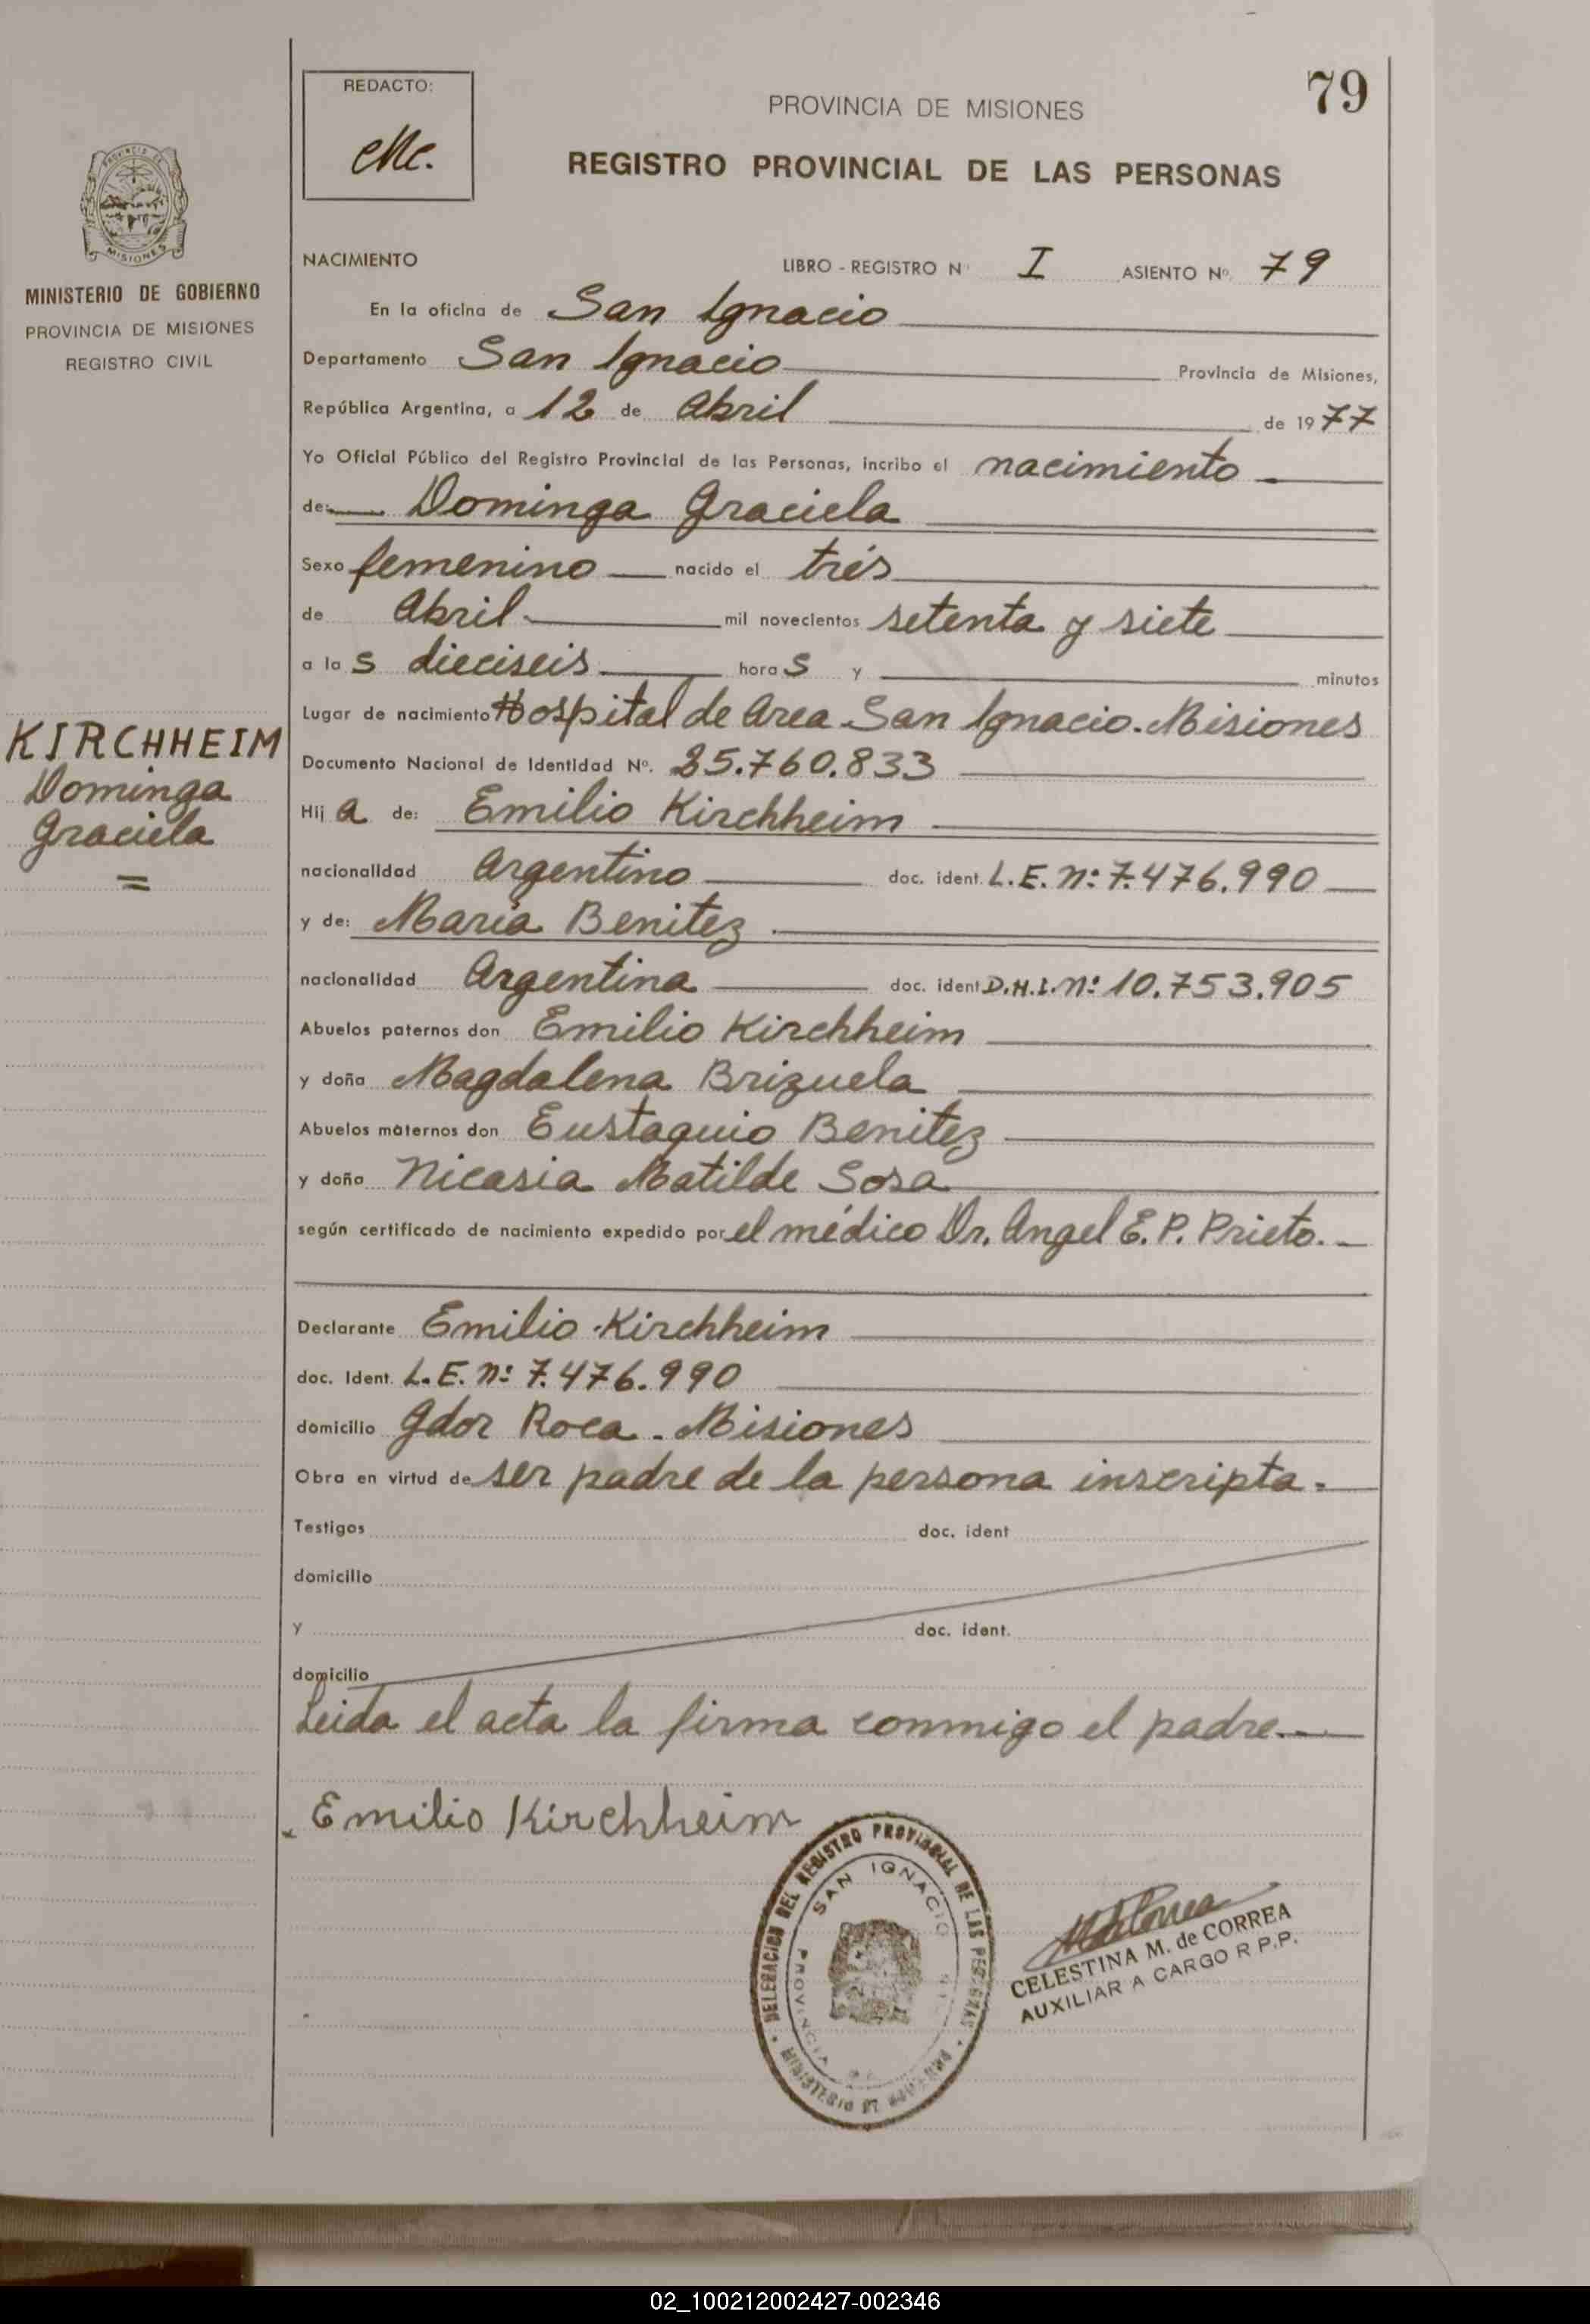 79
REDACTO:
PROVINCIA DE MISIONES
REGISTRO PROVINCIAL DE LAS PERSONAS
MINISTERIO DE GOBIERNO
PROVINCIA DE MISIONES
REGISTRO CIVIL
NACIMIENTO LIBRO - REGISTRO Nº I ASIENTO Nº 79
En la oficina de San Ignacio
Departamento San Ignacio Provincia de Misiones,
República Argentina, a 12 de Abril de 1977
Yo Oficial Público del Registro Provincial de las Personas, incribo el nacimiento
de: Dominga Graciela
Sexo femenino nacido el trés
de Abril mil novecientos setenta y siete
a las dieciseis horas y minutos
Lugar de nacimiento Hospital de Area San Ignacio. Misiones
KIRCHHEIM
Dominga
Graciela
Documento Nacional de Identidad Nº. 25.760.833
Hija de: Emilio Kirchheim
nacionalidad Argentino doc. ident. L.E. nº: 7.476.990
y de: María Benitez
nacionalidad Argentina doc. ident D.N.I. nº: 10.753.905
Abuelos paternos don Emilio Kirchheim
y doña Magdalena Brizuela
Abuelos maternos don Eustaquio Benitez
y doña Nicasia Matilde Sosa
según certificado de nacimiento expedido por el médico Dr. Angel E. P. Prieto.
Declarante Emilio Kirchheim
doc. Ident. L.E. nº: 7.476.990
domicilio Gdor Roca. Misiones
Obra en virtud de ser padre de la persona inscripta.
Testigos doc. ident
domicilio
y doc. ident.
domicilio
Leida el acta la firma conmigo el padre.
Emilio Kirchheim
DELEGACION DEL REGISTRO PROVINCIAL DE LAS PERSONAS
SAN IGNACIO
PROVINCIA
CELESTINA M. de CORREA
AUXILIAR A CARGO R P.P.
02_100212002427-002346